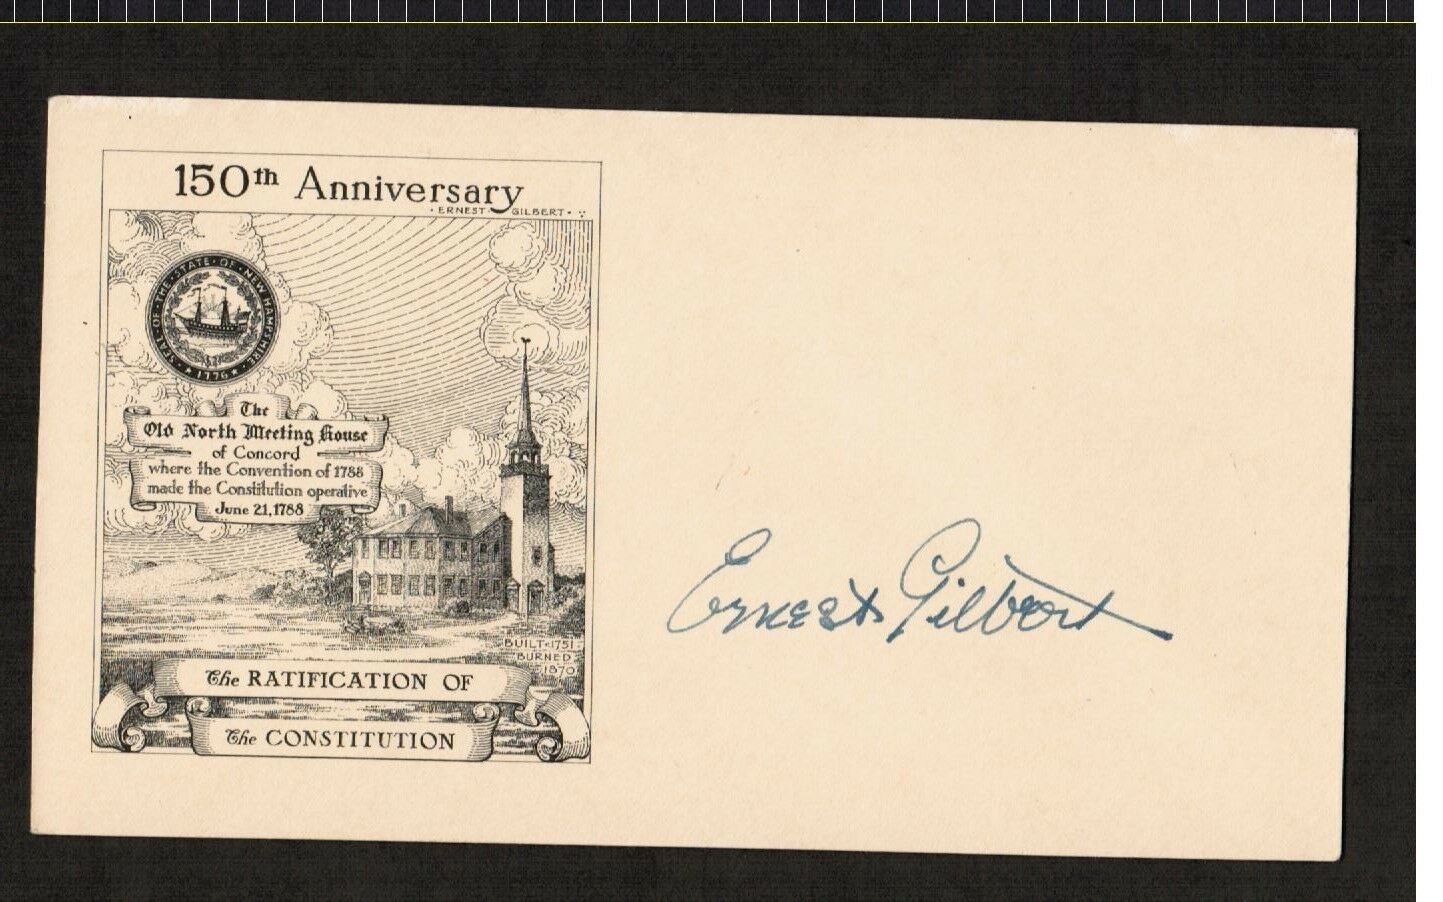 150th Anniversary
· ERNEST · GILBERT ·
· SEAL · OF · THE · STATE · OF · NEW HAMPSHIRE ·
★ 1776 ★
The
Old North Meeting House
of Concord
where the Convention of 1788
made the Constitution operative
June 21, 1788
Ernest Gilbert
BUILT · 1751 ·
BURNED
1870
The RATIFICATION OF
The CONSTITUTION